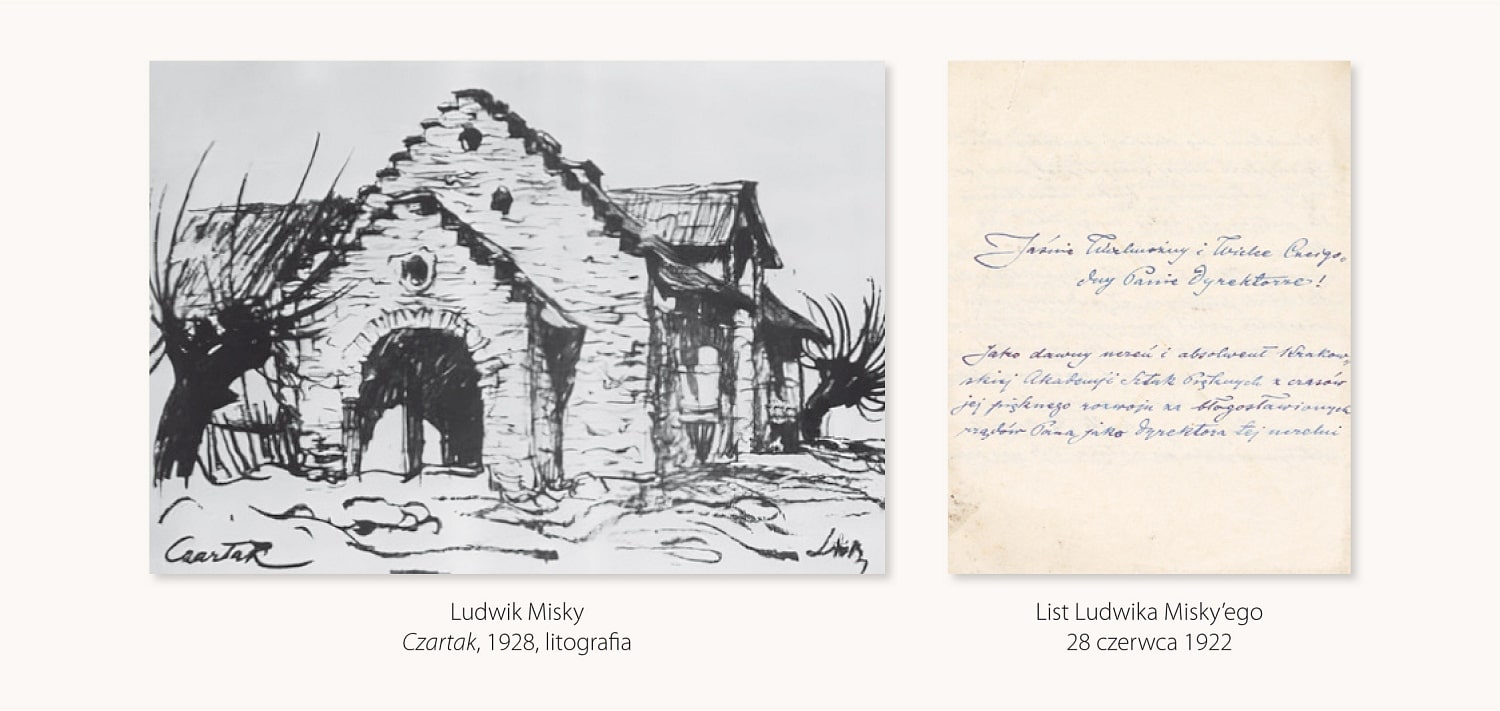 Czartak
Ludwik Misky
Czartak, 1928, litografia
Jaśnie Wielmożny i Wielce Czcigo-
dny Panie Dyrektorze!
Jako dawny uczeń i absolwent Krakow-
skiej Akademji Sztuk Pięknych z czasów
jej pięknego rozwoju za błogosławionych
rządów Pana jako Dyrektora tej uczelni
List Ludwika Misky’ego
28 czerwca 1922